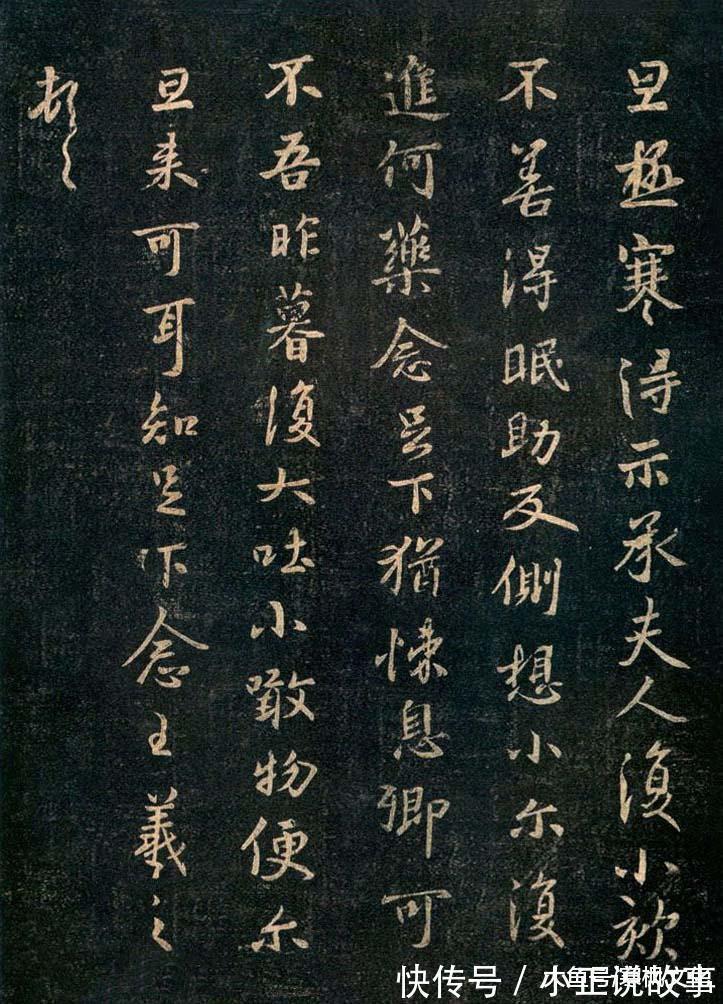 旦極寒得示承夫人復小欬
不善得眠助反側想小尔復
進何藥念足下猶悚息卿可
不吾昨暮復大吐小噉物便尔
旦来可耳知足下念王羲之
頓
快传号／小正说故事